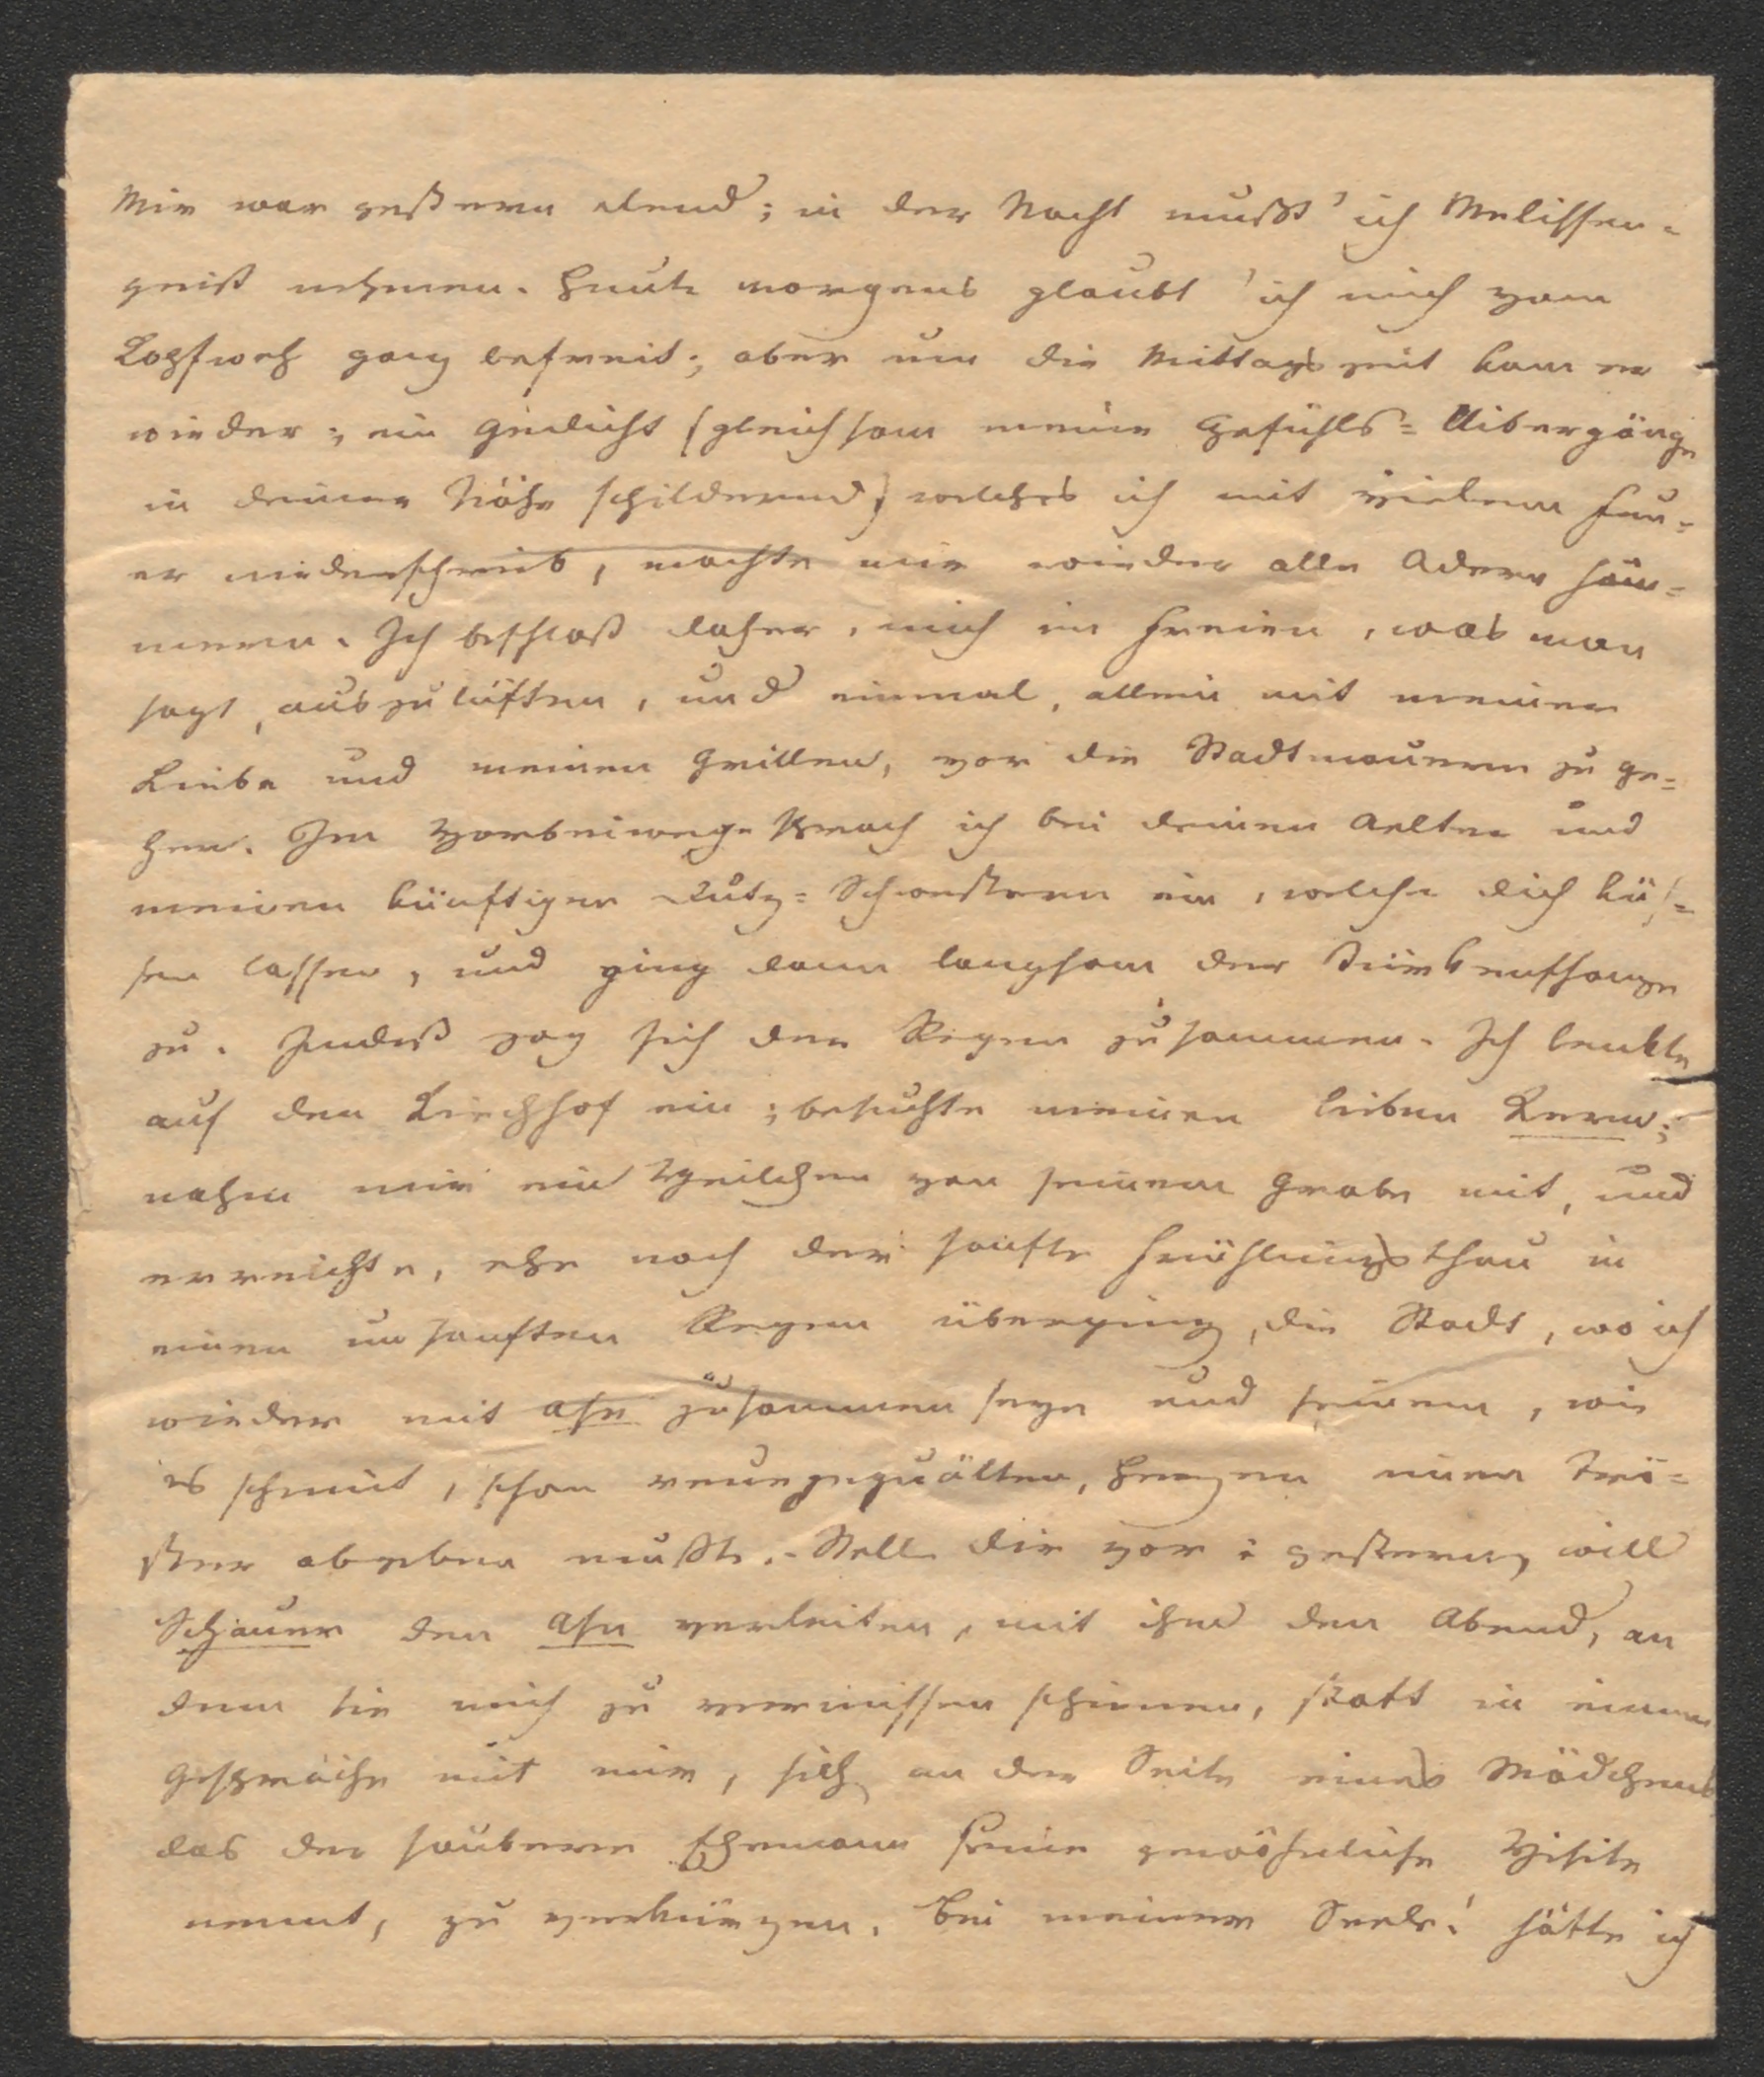 Mir war gestern elend; in der Nacht mußt' ich Melissen-
geist nehmen. Heute morgens glaubt' ich mich vom
Kopfweh ganz befreit; aber um die Mittagszeit kam er
wieder; ein Gedicht (gleichsam meine Gefühls-Uibergänge
in deiner Nähe schildernd) welches ich mit vielem Feu-
er niederschrieb, machte mir wieder alle Adern häm-
mern. Ich beschloß daher, mich im Freien, was man
sagt, auszulüften, und einmal, allein mit meiner
Liebe und meinen Grillen, vor die Stadtmauern zu ge-
hen. Im Vorbeiwege sprach ich bei deinen Aeltern und
meinen künftigen Dutz-Schwestern ein, welche dich kü-
ssen lassen, und ging dann langsam der Türkenschanze
zu. Indeß zog sich der Regen zusammen. Ich lenkte
auf den Kirchhof ein; besuchte meinen lieben Kern;
nahm mir ein Veilchen von seinem Grabe mit, und
erreichte, ehe noch der sanfte Frühlingsthau in
einen unsanften Regen überging, die Stadt, wo ich
wieder mit Ase zusammen seyn und seinem, wie
es scheint, schon reuegequälten, Herzen einen Trö-
ster abgeben mußte. - Stell dir vor: gestern, will
Schauer den Asen verleiten, mit ihm den Abend, an
dem sie mich zu vermissen schienen, statt in einem
Gespräche mit mir, sich an der Seite eines Mädchens
das der saubere Ehemann seine gewöhnliche Visite
nennt, zu verkürzen. Bei meiner Seele! hätte ich